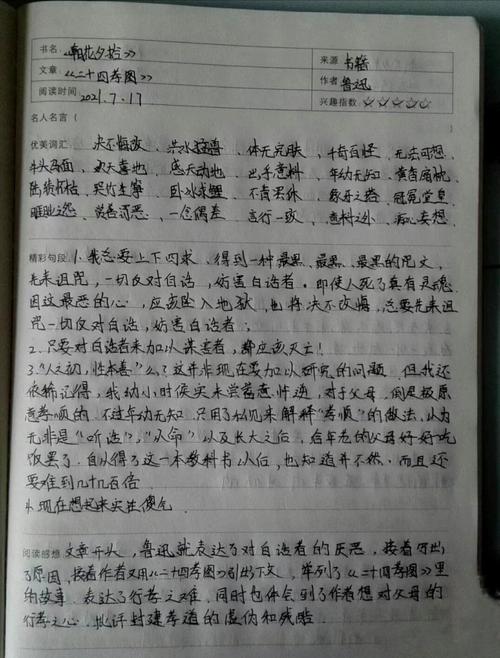 书名：《朝花夕拾》 来源 书籍
文章：《二十四孝图》 作者 鲁迅
阅读时间 2021.7.17 兴趣指数 ☆☆☆☆☆
名人名言（ ）
优美词汇： 决不悔改、洪水猛兽、体无完肤、千奇百怪、无法可想、
牛头马面、欢天喜地、感天动地、出乎意料、年幼无知、黄香扇枕、
陆绩怀桔、哭竹生笋、卧冰求鲤、不肯甘休、
一念偶差、言行一致、意料之外、痴心妄想、
精彩句段 1.我总要上下四求，得到一种最黑、最黑、最黑的咒文，
先来诅咒，一切反对白话，妨害白话者。即使人死了真有灵魂，
因这最恶的心，应该坠入地狱，也将决不改悔，总要先来诅
咒一切反对白话，妨害白话者；
2.只要对白话来加以谋害者，都应该灭亡！
3."人之初，性本善"么？这并非现在要加以研究的问题。但我还
依稀记得，我幼小时候实未尝蓄意忤逆，对于父母，倒是极愿
意孝顺的。不过年幼无知，只用了私见来解释"孝顺"的做法，以为
无非是"听话"，"从命"以及长大之后，给年老的父母好好吃
饭罢了。自从得了这一本教科书以后，也知道并不然，而且还
要难到几十几百倍
4.现在想起来实在傻气
阅读感想 文章开头，鲁迅就表达了对白话者的厌恶，接着写出
了原因，接着作者又用《二十四孝图》引出下文，举列了《二十四孝图》里
的故事，表达了行孝之难，同时也体会到了作者想对父母的
行孝之心，批评封建孝道的虚伪和残酷